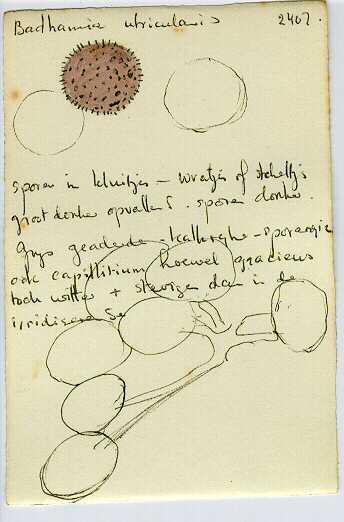 Badhamia utricularis 2407.
sporen in kluitjes – wratjes of stekeltjes
groot donker opvallend. sporen donker.
Grijs geaderde – kalkrijke – sporangia
ook capillitium hoewel gracieus
toch witter + steviger dan in de